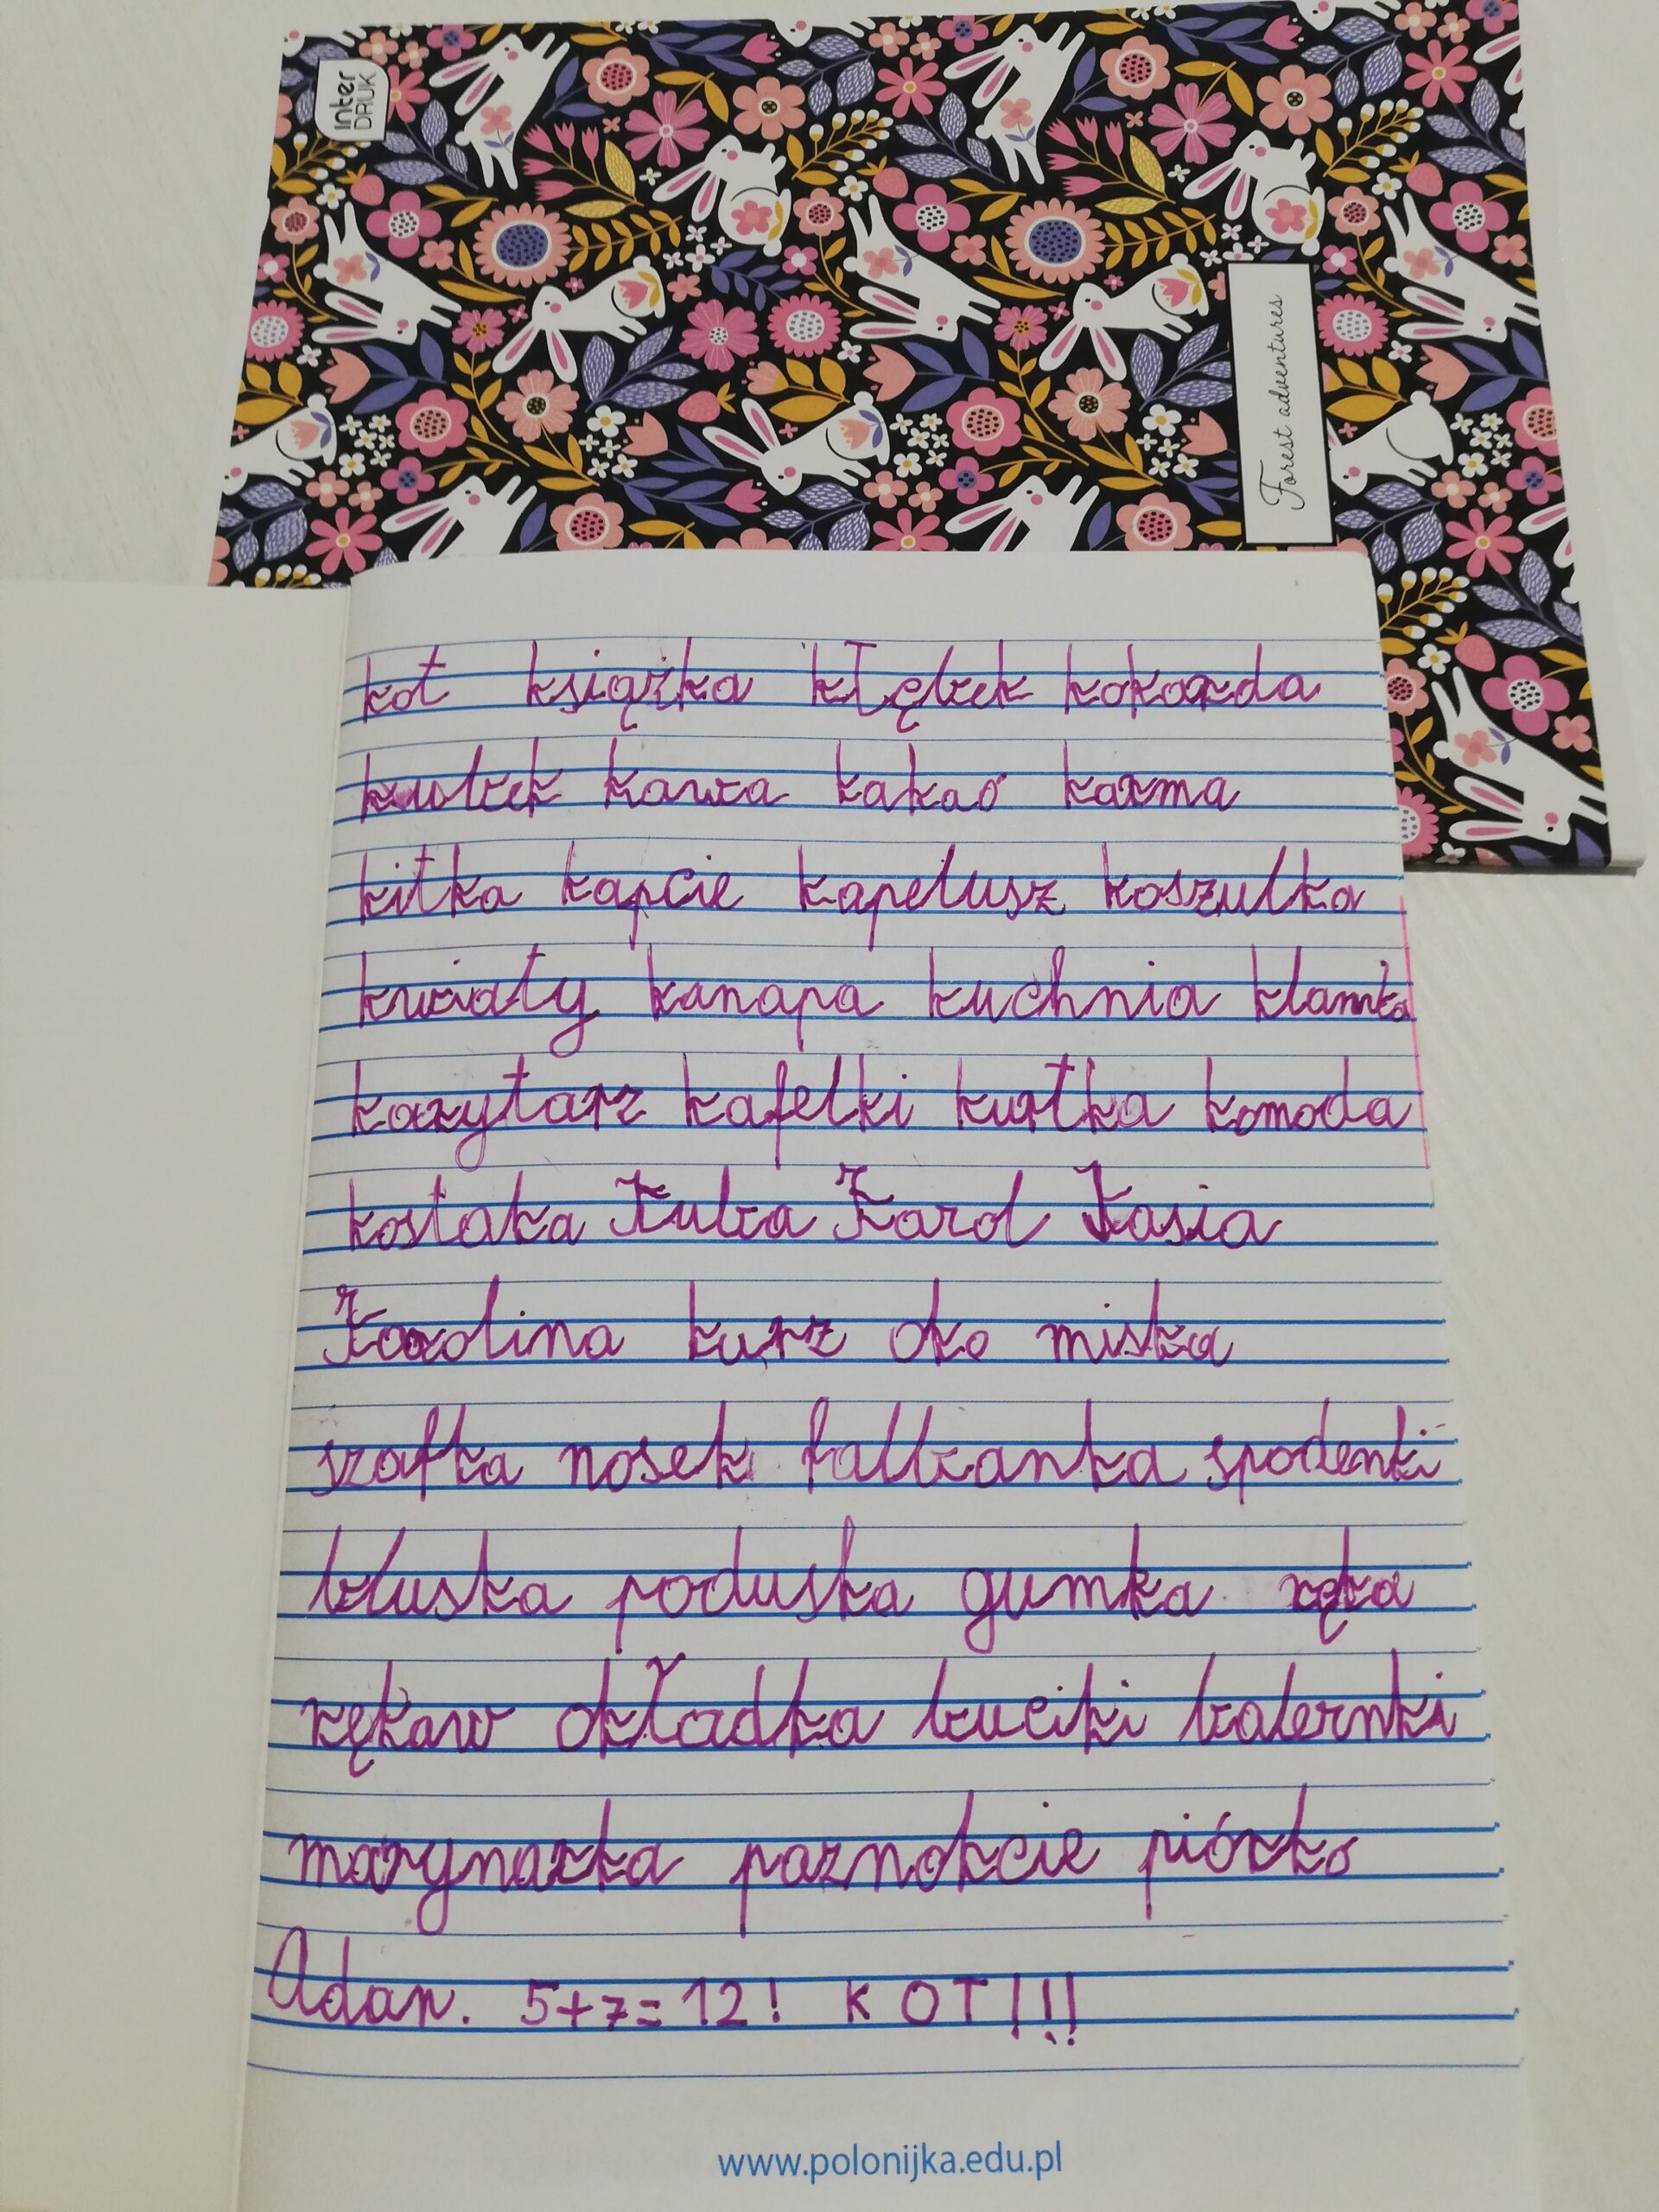 inter
DRUK
Forest adventures
kot książka kłębek kokarda
kubek kawa kakao karma
kitka kapcie kapelusz koszulka
kwiaty kanapa kuchnia klamka
korytarz kafelki kurtka komoda
kostaka Kuba Karol Kasia
Karolina kurz oko miska
szafka nosek falbanka spodenki
bluska poduska gumka ręka
rękaw okładka buciki balernki
marynarka paznokcie piórko
Adam. 5+7=12! KOT!!!
www.polonijka.edu.pl